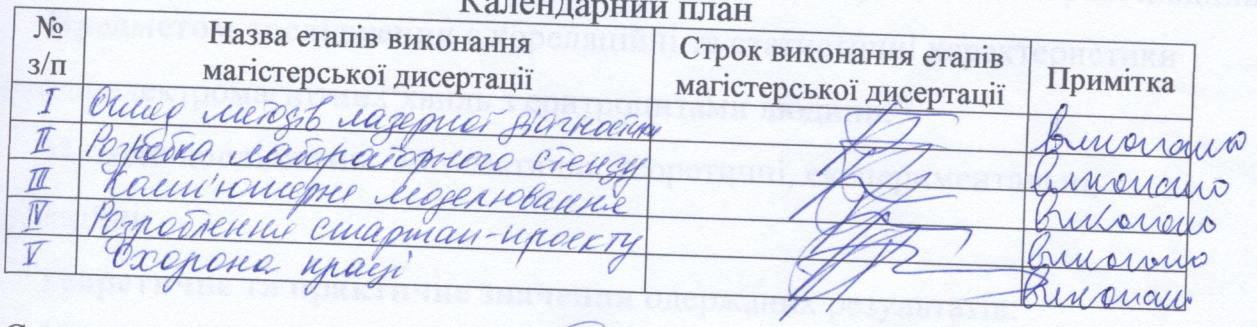 Календарний план
№ з/п Назва етапів виконання магістерської дисертації Строк виконання етапів магістерської дисертації Примітка
I Огляд методів лазерної діагностики виконано
II Розробка лабораторного стенду виконано
III Комп'ютерне моделювання виконано
IV Розроблення стартап-проекту виконано
V Охорона праці виконан.